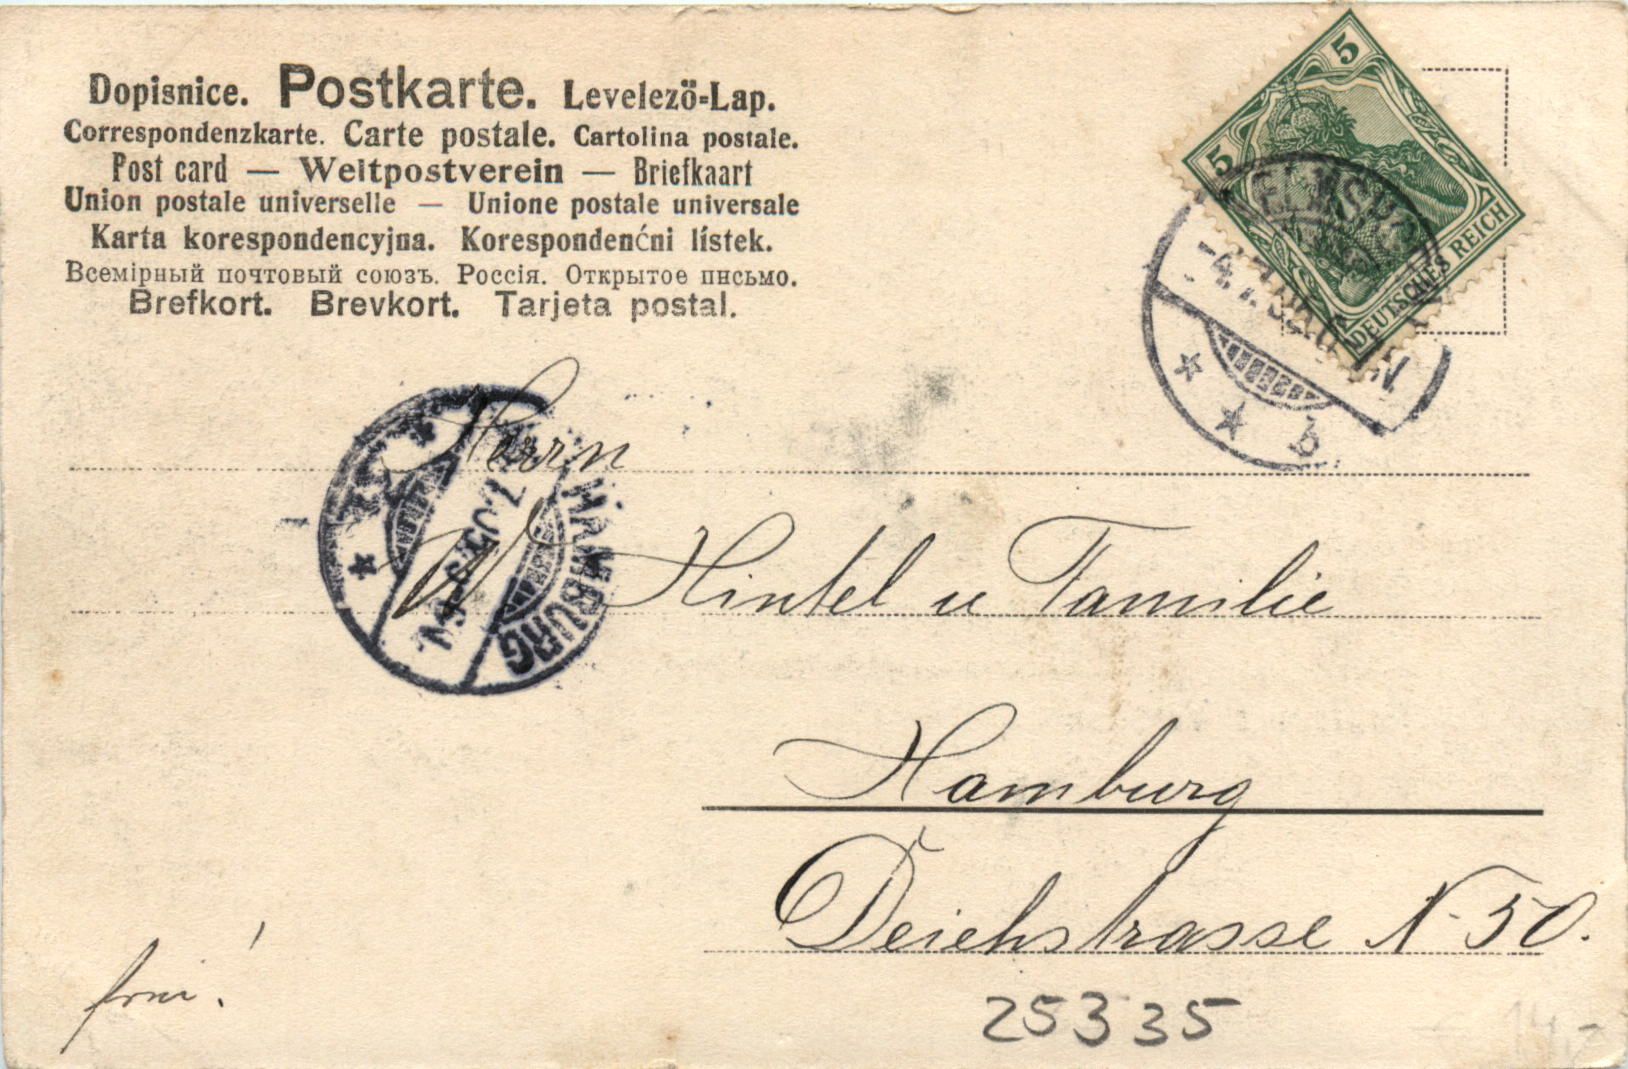 Dopisnice. Postkarte. Levelezö-Lap.
Correspondenzkarte. Carte postale. Cartolina postale.
Post card — Weltpostverein — Briefkaart
Union postale universelle — Unione postale universale
Karta korespondencyjna. Korespondenćni lístek.
Всемірный почтовый союзъ. Россія. Открытое письмо.
Brefkort. Brevkort. Tarjeta postal.
5
5
DEUTSCHES REICH
HAMBURG
Herrn
W Hintel u Familie
Hamburg
Deichstrasse N 50.
frei!
25335
14.-